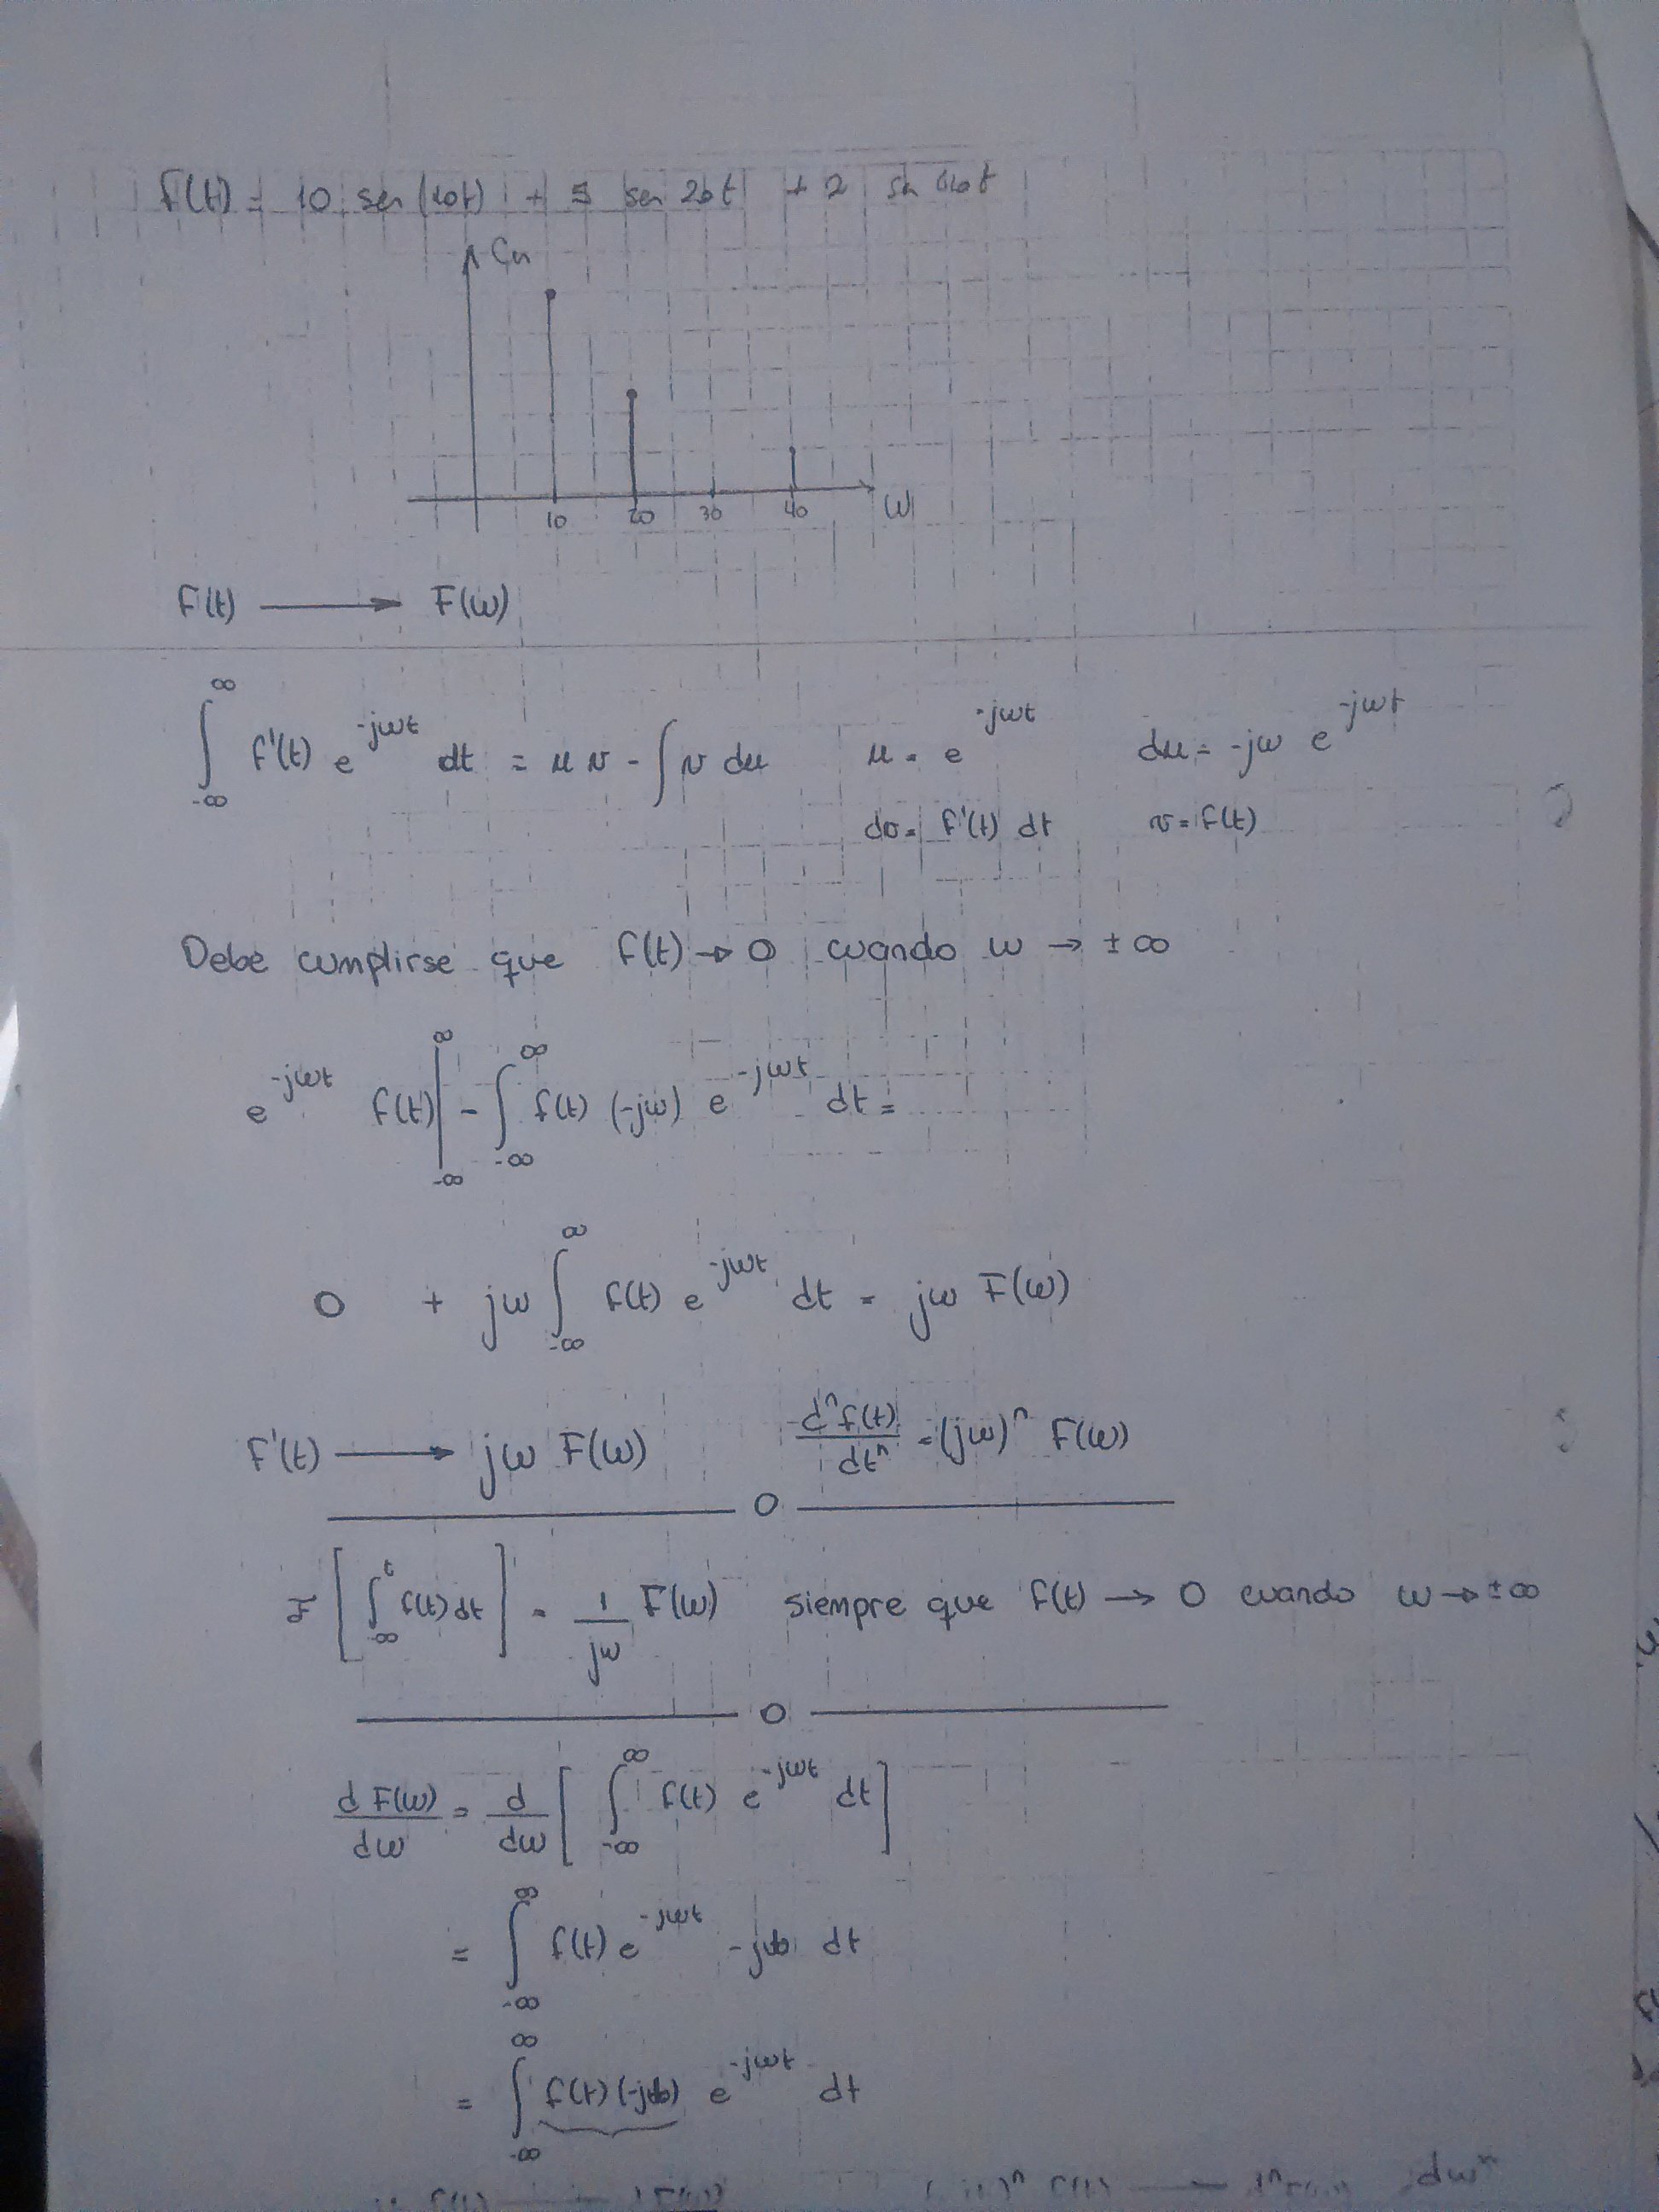 f(t) = 10 sen (10t) + 5 sen 20t + 2 sen 40t
Cn
10 20 30 40 ω
F(t) ⟶ F(ω)
∫_{-∞}^{∞} f'(t) e^{-jωt} dt = μ v - ∫ v dμ μ = e^{-jωt} dμ = -jω e^{-jωt}
dv = f'(t) dt v = f(t)
Debe cumplirse que f(t) → 0 cuando ω → ±∞
e^{-jωt} f(t) |_{-∞}^{∞} - ∫_{-∞}^{∞} f(t) (-jω) e^{-jωt} dt =
0 + jω ∫_{-∞}^{∞} f(t) e^{-jωt} dt = jω F(ω)
F'(t) ⟶ jω F(ω) d^n f(t)/dt^n = (jω)^n F(ω)
O
F [ ∫_{-∞}^{t} f(t) dt ] = 1/jω F(ω) siempre que f(t) → 0 cuando ω → ±∞
O
d F(ω)/dω = d/dω [ ∫_{-∞}^{∞} f(t) e^{-jωt} dt ]
= ∫_{-∞}^{∞} f(t) e^{-jωt} -j dt
= ∫_{-∞}^{∞} f(t) (-j) e^{-jωt} dt
dω^n